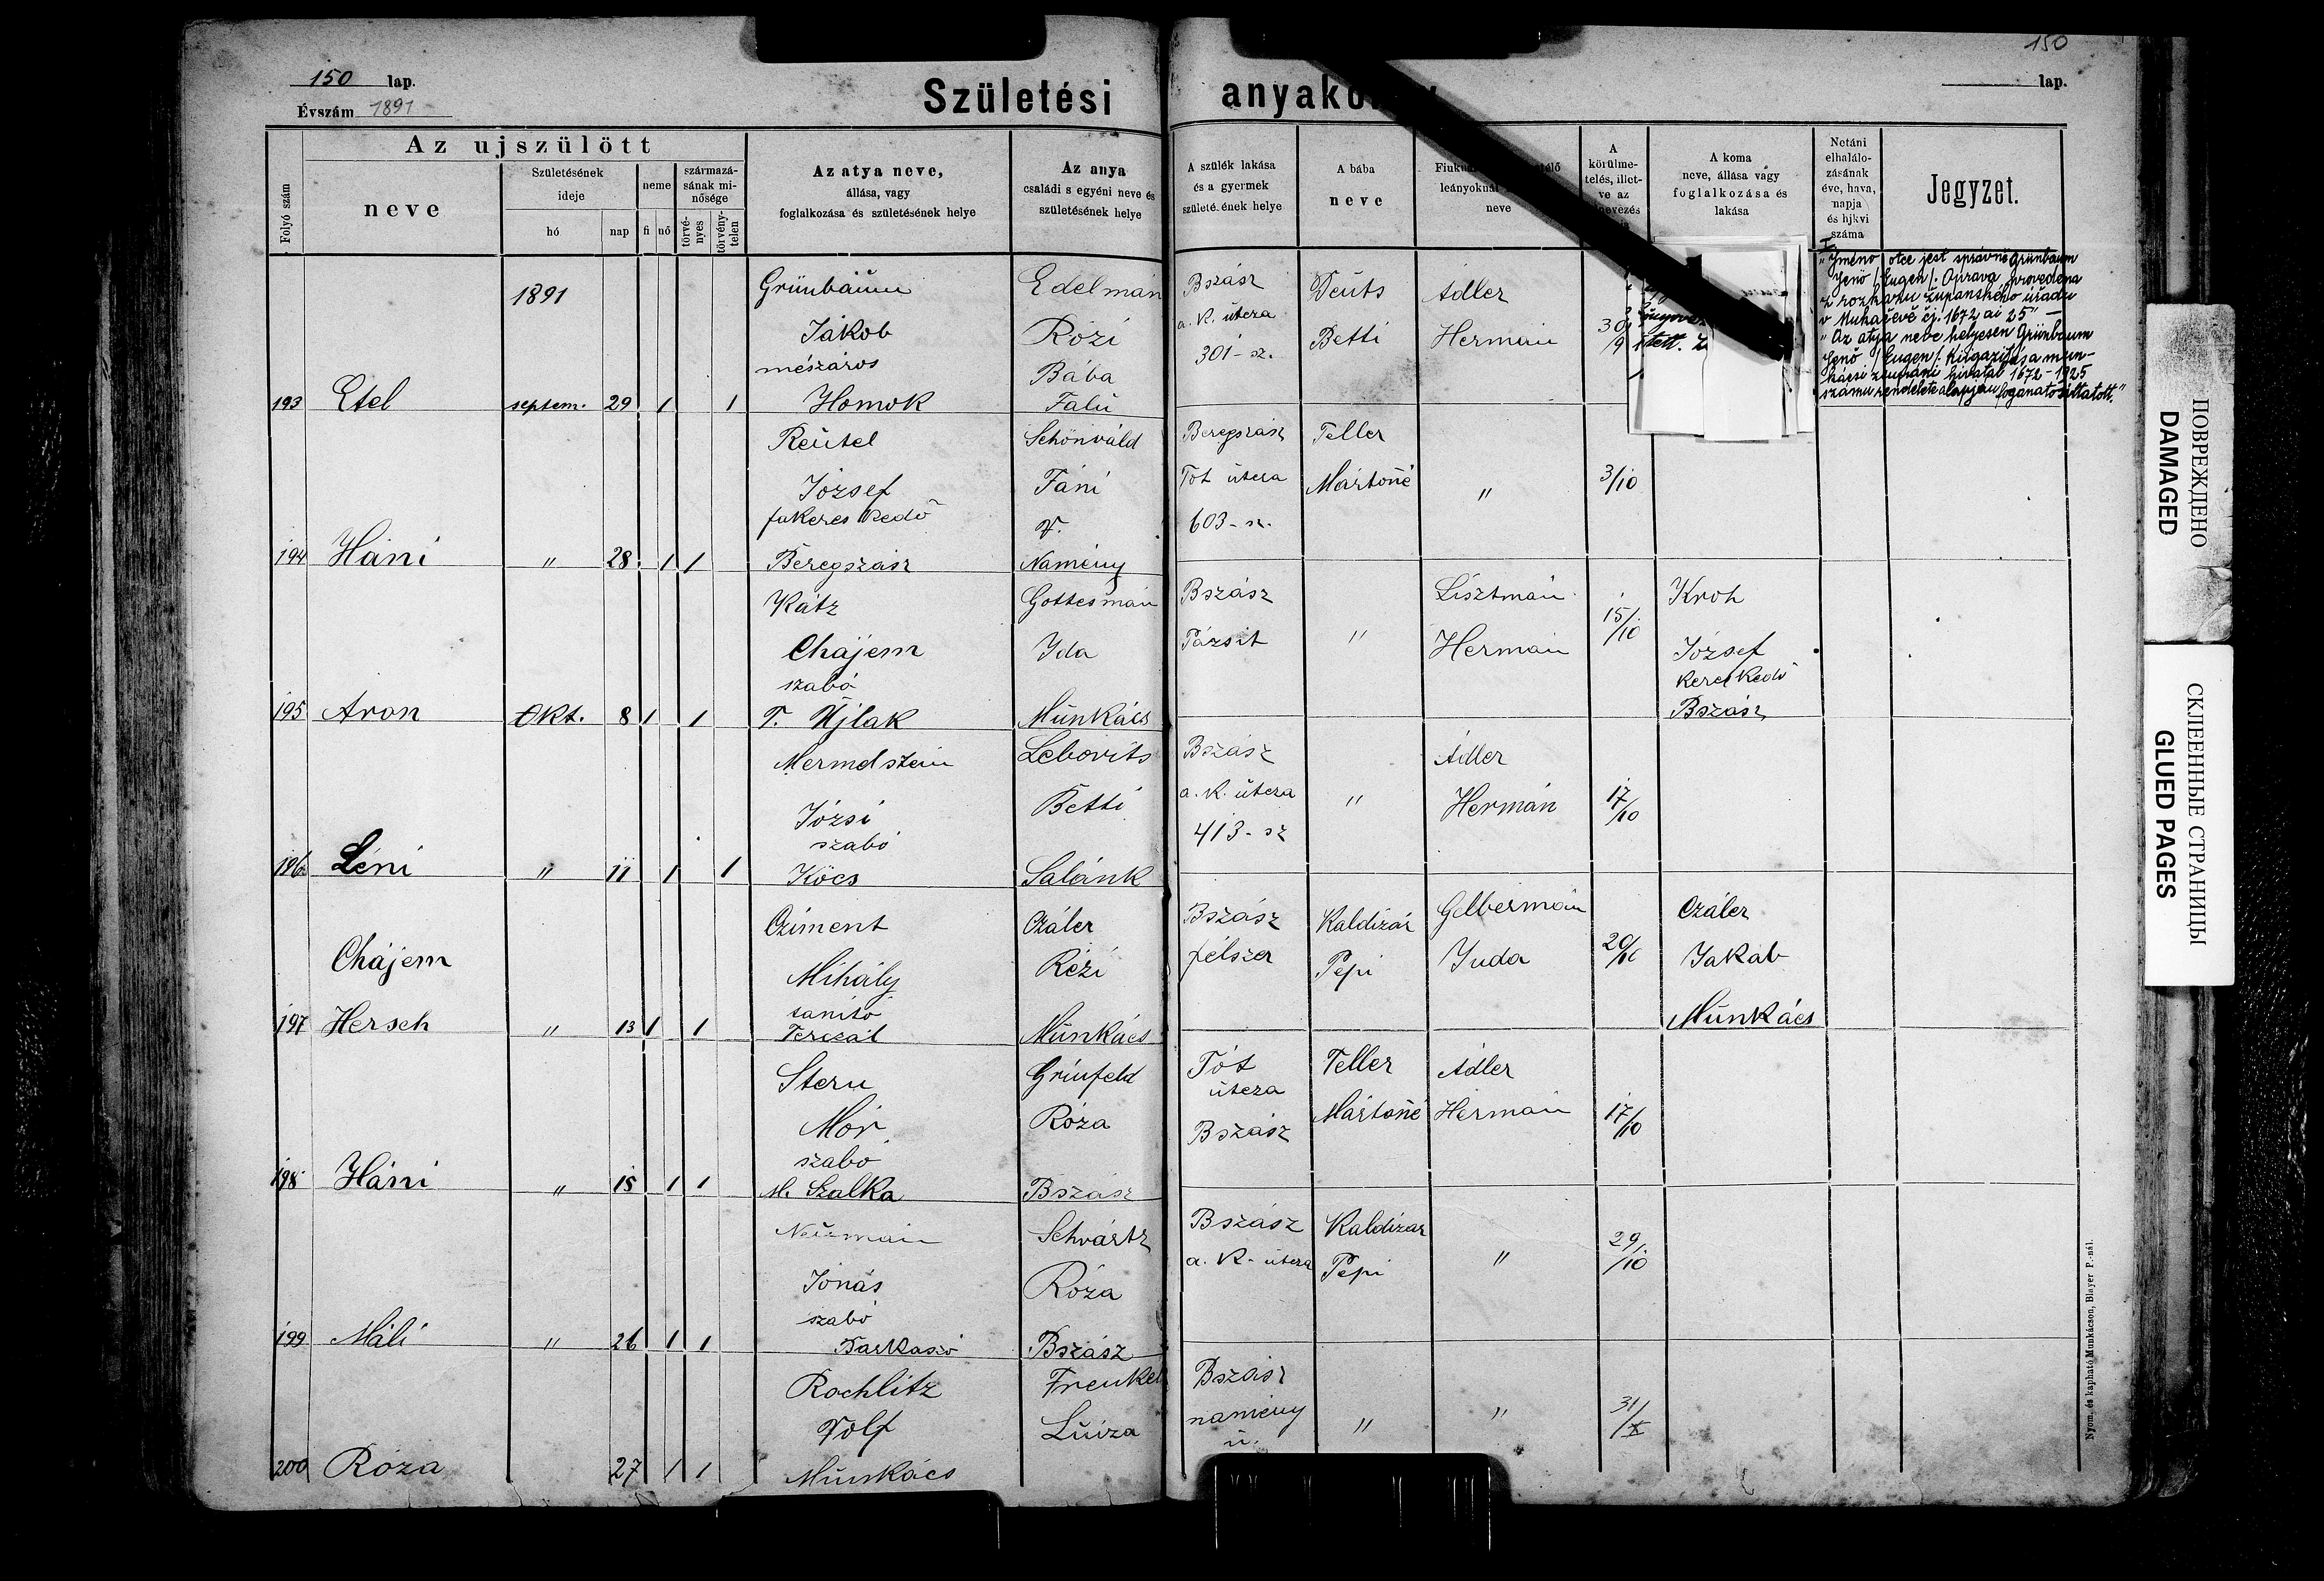 150 lap.
Évszám 1891
Születési anyakö
150
lap.
Folyó szám
Az ujszülött
neve
Születésének
ideje
hó
nap
neme
fi
nő
származá-
sának mi-
nősége
törvé-
nyes
törvény-
telen
Az atya neve,
állása, vagy
foglalkozása és születésének helye
Az anya
családi s egyéni neve és
születésének helye
A szülék lakása
és a gyermek
születé.ének helye
A bába
neve
leányoknál
neve
A
körülme-
telés, illet-
ve az
A koma
neve, állása vagy
foglalkozása és
lakása
Netáni
elhalálo-
zásának
éve, hava,
napja
és hjkvi
száma
Jegyzet.
1891
Grünbaum
Jákob
mészáros
193 Etel septem. 29 1 1 Homok
Edelmán
Rózi
Bába
Falu
Bszász
a. K. útcza
301-sz.
Deuts
Betti
Adler
Hermán
30/9
"Jméno otce jest správně Grünbaum
Jenö /Eugen/. Oprava provedena
z rozkazu županského úřadu
v Mukačevě čj. 1672 ai 25" —
"Az atya neve helyesen Grünbaum
Jenő /Eugen/. Kiigazitás a mun-
kácsi zsupáni hivatal 1672-1925
számu rendelete alapján foganatosittatott."
Reutel
József
fakereskedő
194 Háni " 28 1 1 Beregszász
Schönváld
Fáni
V.
Namény
Beregszász
Tót útcza
603-sz.
Teller
Mártonné
"
3/10
Kátz
Chájem
szabó
195 Aron Okt. 8 1 1 T. Ujlak
Gottesmán
Ida
Munkács
Bszász
Pázsit
"
Lisztmán
Hermán
15/10
Kroh
József
kereskedő
Bszász
Mermelstein
Józsi
szabó
196 Léni " 11 1 1 Kócs
Lebovits
Betti
Salánk
Bszász
a. K. útcza
413-sz
"
Adler
Hermán
17/10
Cziment
Chájem
Mihály
tanító
197 Hersch " 13 1 1
Czáler
Rézi
Munkács
Bszász
félszer
Kaldizár
Pepi
Gelbermán
Juda
20/10
Czáler
Jakab
Munkács
Stern
Mór
szabó
198 Háni " 15 1 1 M. Szalka
Grünfeld
Róza
Bszász
Tót
útcza
Bszász
Teller
Mártonné
Adler
Hermán
17/10
Neumán
Jónás
szabó
199 Máli " 26 1 1 Barkaszó
Schvártz
Róza
Bszász
Bszász
a. K. útcza
Kaldizár
Pepi
"
29/10
Rochlitz
Volf
200 Róza 27 1 1 Munkács
Frenkel
Luiza
Bszász
namény
u.
"
"
31/X
Nyom. és kapható Munkácson, Blayer P.-nál.
ПОВРЕЖДЕНО
DAMAGED
СКЛЕЕННЫЕ СТРАНИЦЫ
GLUED PAGES